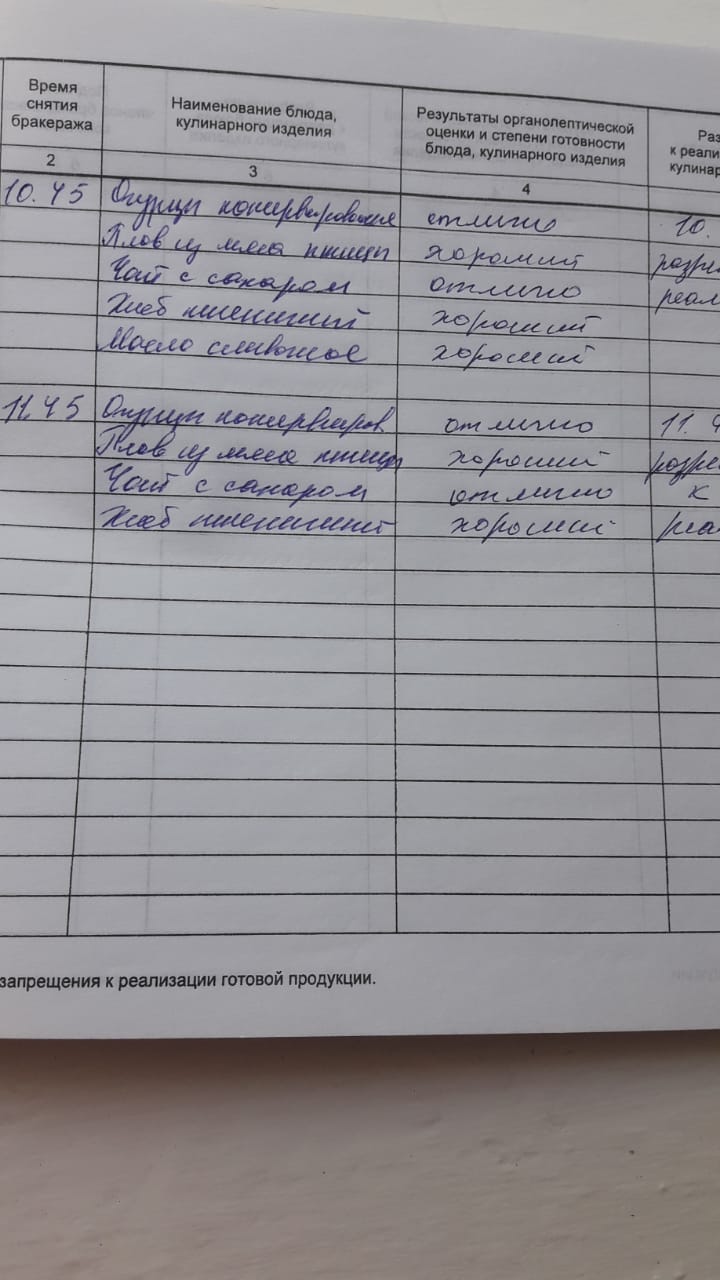 Время снятия бракеража | Наименование блюда, кулинарного изделия | Результаты органолептической оценки и степени готовности блюда, кулинарного изделия | Раз к реали кулинар
2 | 3 | 4
10.45 | Огурцы консервированные | отлично | 10.
Плов из мяса птицы | хороший | разре
Чай с сахаром | отлично | реал
Хлеб пшеничный | хороший
Масло сливочное | хороший
11.45 | Огурцы консервиров | отлично | 11. 4
Плов из мяса птицы | хороший | разре
Чай с сахаром | отлично | к
Хлеб пшеничный | хороший | реа
запрещения к реализации готовой продукции.